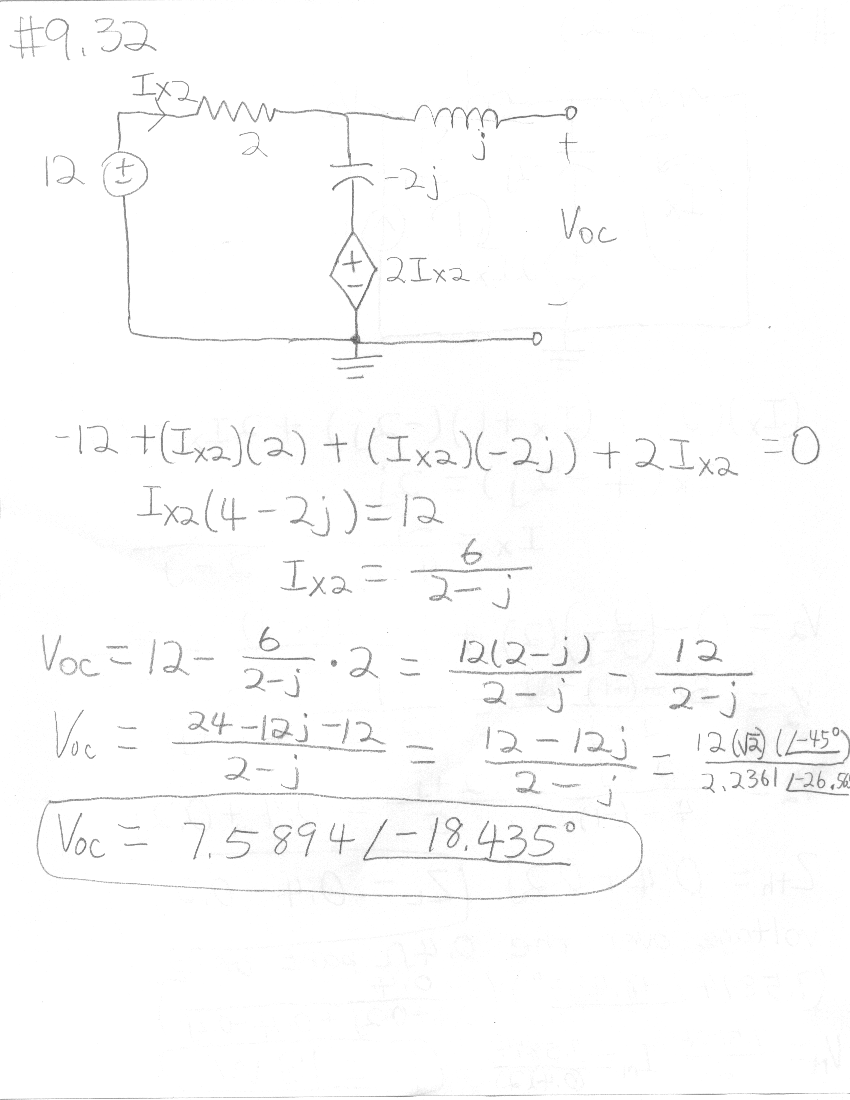 #9.32
Ix2
2
j
+
12
±
-2j
Voc
+
-
2Ix2
-
-12 + (Ix2)(2) + (Ix2)(-2j) + 2Ix2 = 0
Ix2(4-2j) = 12
Ix2 = 6/(2-j)
Voc = 12 - 6/(2-j) · 2 = 12(2-j)/(2-j) - 12/(2-j)
Voc = (24-12j-12)/(2-j) = (12-12j)/(2-j) = 12(√2)(∠-45°)/2.2361∠-26.56
Voc = 7.5894∠-18.435°